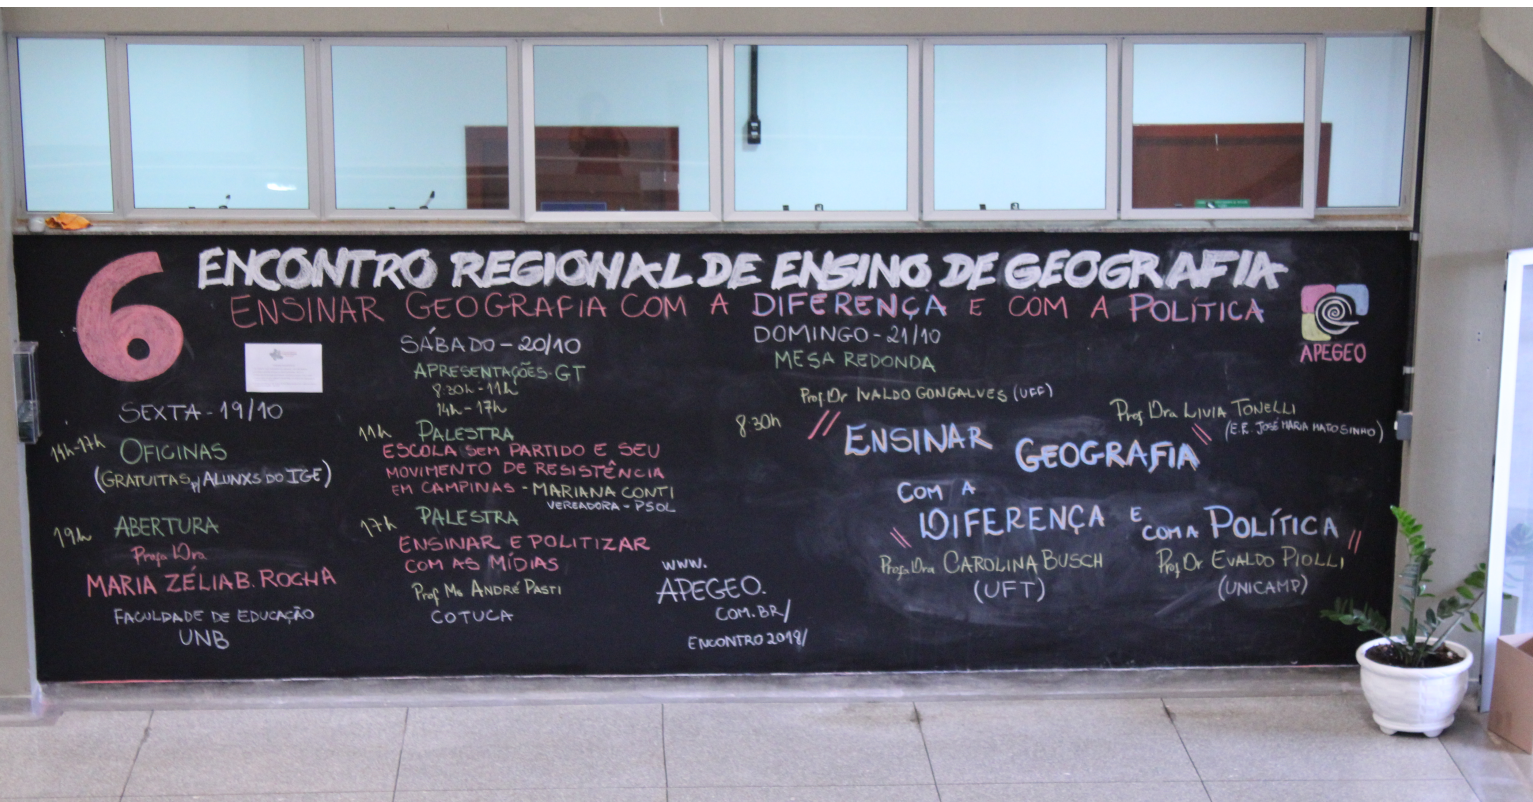 6
ENCONTRO REGIONAL DE ENSINO DE GEOGRAFIA
ENSINAR GEOGRAFIA COM A DIFERENÇA E COM A POLÍTICA
APEGEO
SEXTA - 19/10
14h-17h OFICINAS
(GRATUITAS p/ ALUNXS DO IGE)
19h ABERTURA
Profa Dra.
MARIA ZÉLIA B. ROCHA
FACULDADE DE EDUCAÇÃO
UNB
SÁBADO - 20/10
APRESENTAÇÕES-GT
8:30h - 11h
14h - 17h
11h PALESTRA
ESCOLA SEM PARTIDO E SEU
MOVIMENTO DE RESISTÊNCIA
EM CAMPINAS - MARIANA CONTI
VEREADORA - PSOL
17h PALESTRA
ENSINAR E POLITIZAR
COM AS MÍDIAS
Prof Ms ANDRÉ PASTI
COTUCA
WWW.
APEGEO.
COM.BR/
ENCONTRO2018/
DOMINGO - 21/10
MESA REDONDA
8:30h
Prof Dr IVALDO GONÇALVES (UFF)
Prof Dra LIVIA TONELLI
(E.E. JOSÉ MARIA MATOSINHO)
// ENSINAR GEOGRAFIA \\
COM A
\\ DIFERENÇA E COM A POLÍTICA //
Profa Dra CAROLINA BUSCH
(UFT)
Prof Dr EVALDO PIOLLI
(UNICAMP)